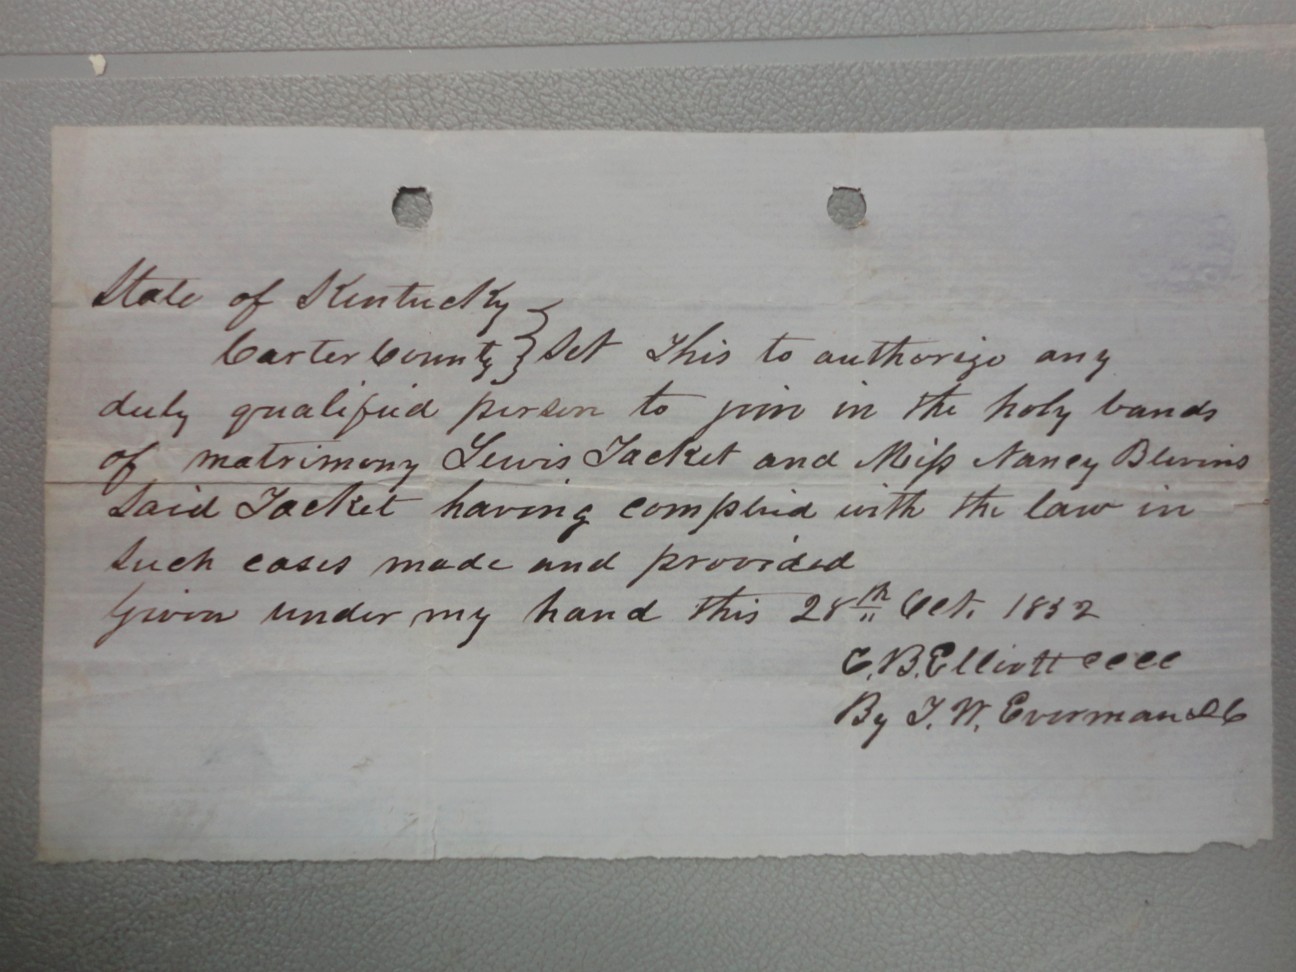 State of Kentucky }
Carter County } Sct This to authorize any
duly qualified person to join in the holy bands
of matrimony Lewis Tacket and Miss Nancy Blevins
Said Tacket having complied with the law in
such cases made and provided
Given under my hand this 28th Oct. 1852
C. B. Elliott CCCC
By T. W. Everman DC